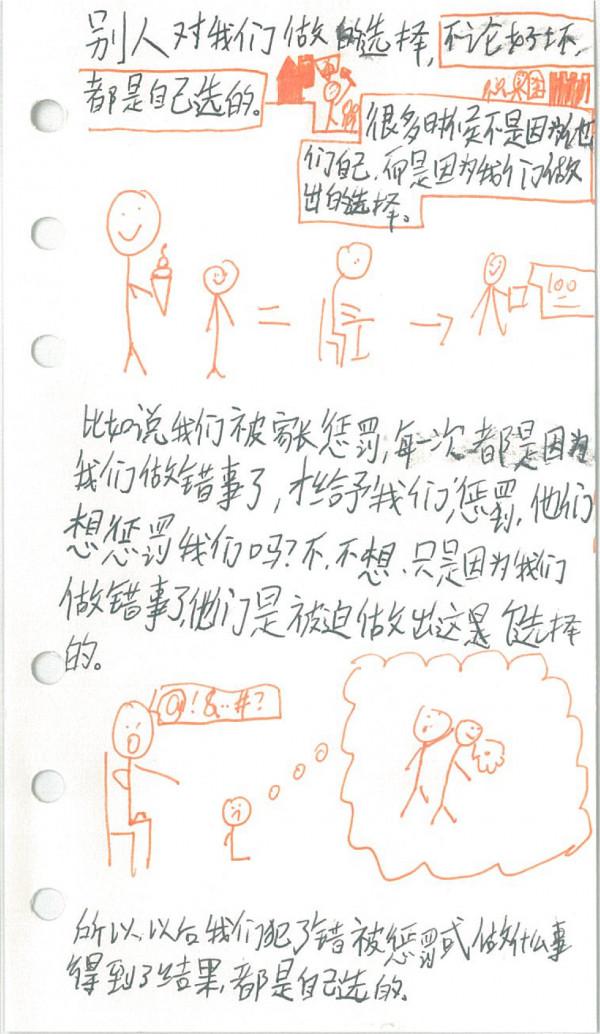 别人对我们做的选择,不论好坏,
都是自己选的。
很多时候不是因为他
们自己,而是因为我们做
出的选择。
100
比如说我们被家长惩罚,每一次都是因为
我们做错事了,才给予我们惩罚,他们
想惩罚我们吗?不,不想,只是因为我们
做错事了,他们是被迫做出这是个选择
的。
@!&..#?
所以,以后我们犯了错被惩罚或做什么事
得到了结果,都是自己选的。